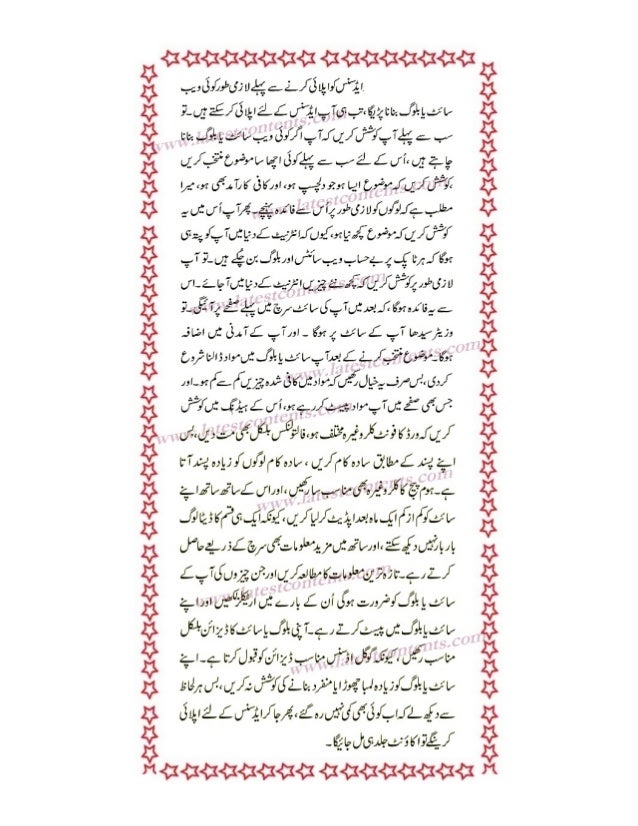 ایڈسنس کو اپلائی کرنے سے پہلے لازمی طور کوئی ویب
سائٹ یا بلوگ بنانا پڑیگا، تب ہی آپ ایڈسنس کے لئے اپلائی کر سکتے ہیں۔ تو
سب سے پہلے آپ کوشش کریں کہ آپ اگر کوئی ویب سائٹ یا بلوگ بنانا
چاہتے ہیں، اُس کے لئے سب سے پہلے کوئی اچھا سا موضوع منتخب کریں
،کوشش کریں کہ موضوع ایسا ہو جو دلچسپ ہو، اور کافی کارآمد بھی ہو، میرا
مطلب ہے کہ لوگوں کو لازمی طور پر اُس سے فائدہ پہنچے۔ پھر آپ اُس میں یہ
کوشش کریں کہ موضوع کچھ نیا ہو، کیوں کہ انٹرنیٹ کے دنیا میں آپ کو پتہ ہی
ہوگا کہ ہر ٹاپک پر بے حساب ویب سائٹس اور بلوگ بن چکے ہیں۔ تو آپ
لازمی طور پر کوشش کریں کہ کچھ نئے چیزیں انٹرنیٹ کے دنیا میں آجائے۔ اس
سے یہ فائدہ ہوگا، کہ بعد میں آپ کی سائٹ سرچ میں پہلے صفحے پر آئیگی۔ تو
وزیٹر سیدھا آپ کے سائٹ پر ہوگا ۔ اور آپ کے آمدنی میں اضافہ
ہوگا۔ موضوع منتخب کرنے کے بعد آپ سائٹ یا بلوگ میں مواد ڈالنا شروع
کردی، بس صرف یہ خیال رکھیں کہ مواد میں کاپی شدہ چیزیں کم سے کم ہو۔ اور
جس بھی صفحے میں آپ مواد پیسٹ کر رہے ہو، اُس کے ہیڈنگ میں کوشش
کریں کہ ورڈ کا فونٹ کلر وغیرہ مختلف ہو، فالتو لنکس بلکل بھی مت دیں، بس
اپنے پسند کے مطابق سادہ کام کریں ، سادہ کام لوگوں کو زیادہ پسند آتا
ہے۔ ہوم پیج کا کلر وغیرہ بھی مناسب سا رکھیں، اور اس کے ساتھ ساتھ اپنے
سائٹ کو کم از کم ایک ماہ بعد اپڈیٹ کر لیا کریں، کیونکہ ایک ہی قسم کا ڈیٹا لوگ
بار بار نہیں دیکھ سکتے ، اور ساتھ میں مزید معلومات بھی سرچ کے ذریعے حاصل
کرتے رہے۔ تازہ ترین معلومات کا مطالعہ کریں اور جن چیزوں کی آپ کے
سائٹ یا بلوگ کو ضرورت ہوگی اُن کے بارے میں آرٹیکلز لکھیں اور اپنے
سائٹ یا بلوگ میں پیسٹ کرتے رہے۔ اپنی بلوگ یا سائٹ کا ڈیزائن بلکل
مناسب رکھیں ، کیونکہ گوگل اڈسنس مناسب ڈیزائن کو قبول کرتا ہے۔ اپنے
سائٹ یا بلوگ کو زیادہ لمبا چھوڑا یا منفرد بنانے کی کوشش نہ کریں، بس ہر لحاظ
سے دیکھ لے کہ اب کوئی بھی کمی نہیں رہ گئے، پھر جا کر ایڈسنس کے لئے اپلائی
کرینگے تو اکاؤنٹ جلد ہی مل جائیگا ۔
www.latestcontents.com
www.latestcontents.com
www.latestcontents.com
www.latestcontents.com
www.latestcontents.com
www.latestcontents.com
www.latestcontents.com
www.latestcontents.com